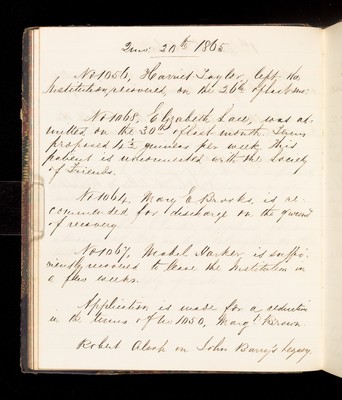 20th 1865
No 1056, Harriet Taylor, left the
Institution, recovered, on the 26th of last mo.
No 1068, Elizabeth was ad-
mitted on the 30th of last month. Terms
proposed 4 guineas per week. This
patient is unconnected with the Society
of Friends.
No 1064, Mary E Brooks, is re-
commended for discharge on the ground
of recovery.
No 1067, Mabel Harker, is suffi-
ciently recovered to leave the Institution in
a few weeks.
Application is made for a reduction
in the terms of No 1050, Margt Brown.
Robert on John Barry's legacy.